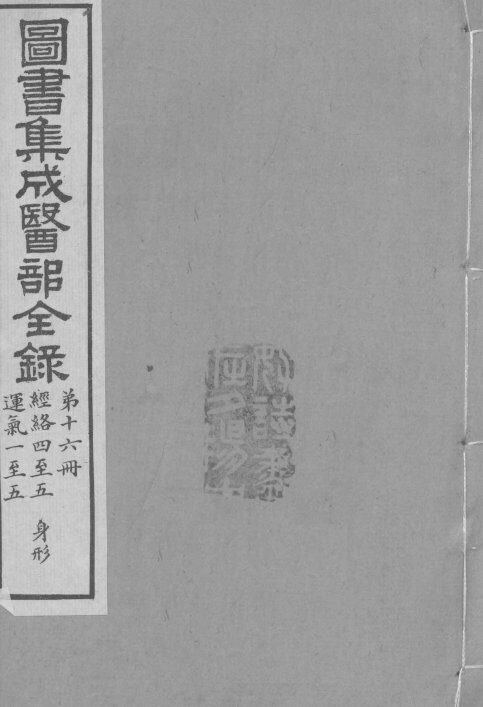 圖書集成醫部全錄
弟十六冊
經絡四至五 身形
運氣一至五